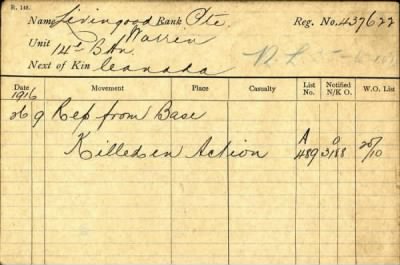 R. 140.
Name Livingood Rank Pte. Reg. No. 437622
Warrin
Unit 14th Bn.
Next of Kin Canada
Date Movement Place Casualty List No. Notified N/K O. W.O. List
1916
26 9 Rep from Base
Killed in Action A 489 O 3188 20/10